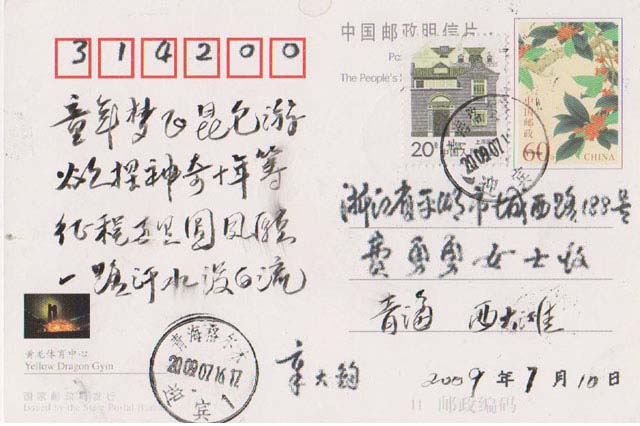 314200
中国邮政明信片
Po
The People's
20分
中国邮政
60分
CHINA
童年梦飞昆仑游
欲探神奇十年等
征程万里圆夙愿
一路汗水没白流
浙江省平湖市城西路188号
费勇勇女士收
青海
2009年7月10日
青海
2009.07.16.17
1
2009.07.1
黄龙体育中心
Yellow Dragon Gym
国家邮政局发行
Issued by the State Postal Bureau
邮政编码